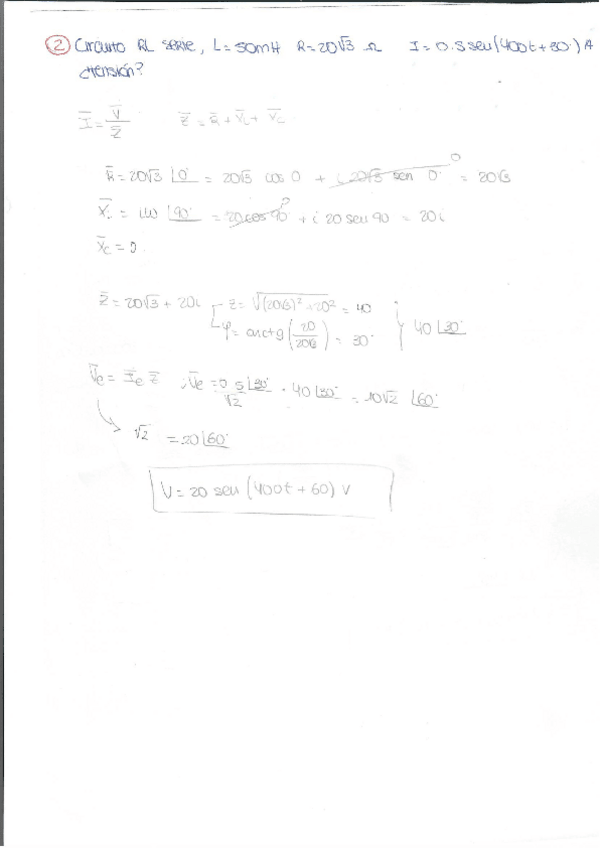 ② Circuito RL serie, L=50mH R=20√3 Ω I=0.5 seu(400t+30°)A
¿tensión?
Ī = V̄/Z̄ Z̄ = R̄ + X̄L + X̄C
R̄ = 20√3 ∠0° = 20√3 cos 0 + i 20√3 sen 0° = 20√3
X̄L = Lω ∠90° = 20 cos 90° + i 20 seu 90 = 20i
X̄c = 0
Z̄ = 20√3 + 20i Z = √((20√3)² + 20²) = 40
φ = arctg (20/20√3) = 30° } 40 ∠30°
V̄e = Īe Z̄ ; V̄e = 0.5∠30°/√2 · 40 ∠30° = 10√2 ∠60°
√2 = 20 ∠60°
V = 20 seu (400t + 60) V